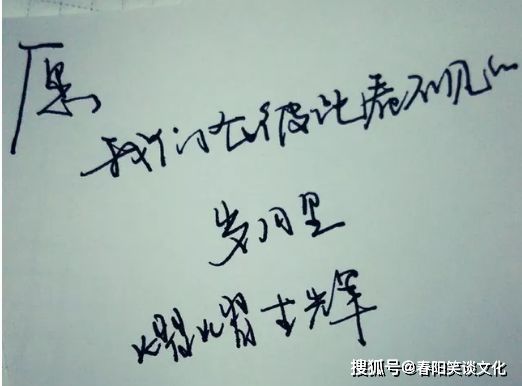 愿
我们在彼此看不见的
岁月里
熠熠生辉
搜狐号@春阳笑谈文化